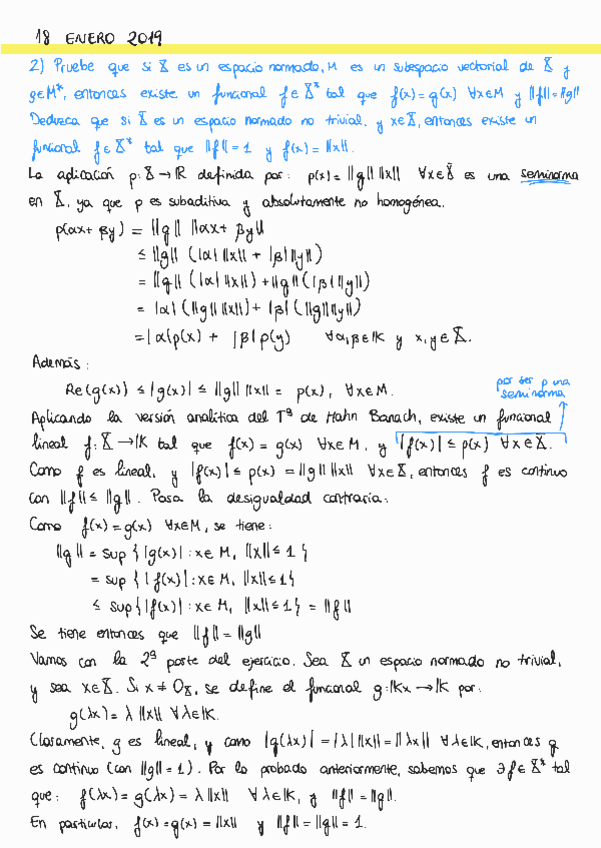 18 ENERO 2019
2) Pruebe que si X es un espacio normado, M es un subespacio vectorial de X y
g∈M*, entonces existe un funcional f∈X* tal que f(x)=g(x) ∀x∈M y ‖f‖=‖g‖
Deduzca que si X es un espacio normado no trivial y x∈X, entonces existe un
funcional f∈X* tal que ‖f‖=1 y f(x)=‖x‖.
La aplicación p:X→ℝ definida por: p(x)=‖g‖‖x‖ ∀x∈X es una seminorma
en X, ya que p es subaditiva y absolutamente no homogénea.
p(αx+βy) = ‖g‖ ‖αx+βy‖
≤ ‖g‖ (|α|‖x‖ + |β|‖y‖)
= ‖g‖ (|α|‖x‖) + ‖g‖(|β|‖y‖)
= |α|(‖g‖‖x‖) + |β|(‖g‖‖y‖)
= |α|p(x) + |β|p(y) ∀α,β∈𝕂 y x,y∈X.
Además:
Re(g(x)) ≤ |g(x)| ≤ ‖g‖‖x‖ = p(x), ∀x∈M.
por ser p una
seminorma
Aplicando la versión analítica del Tª de Hahn Banach, existe un funcional
lineal f:X→𝕂 tal que f(x)=g(x) ∀x∈M, y |f(x)|≤p(x) ∀x∈X.
Como f es lineal, y |f(x)|≤p(x)=‖g‖‖x‖ ∀x∈X, entonces f es continuo
con ‖f‖≤‖g‖. Pasa la desigualdad contraria:
Como f(x)=g(x) ∀x∈M, se tiene:
‖g‖ = sup{|g(x)|:x∈M, ‖x‖≤1}
= sup{|f(x)|:x∈M, ‖x‖≤1}
≤ sup{|f(x)|:x∈M, ‖x‖≤1} = ‖f‖
Se tiene entonces que ‖f‖=‖g‖
Vamos con la 2ª parte del ejercicio. Sea X un espacio normado no trivial,
y sea x∈X. Si x≠0_X, se define el funcional g:𝕂x→𝕂 por:
g(λx)=λ‖x‖ ∀λ∈𝕂.
Claramente, g es lineal, y como |g(λx)|=|λ|‖x‖=‖λx‖ ∀λ∈𝕂, entonces g
es continuo (con ‖g‖=1). Por lo probado anteriormente, sabemos que ∃f∈X* tal
que: f(λx)=g(λx)=λ‖x‖ ∀λ∈𝕂, y ‖f‖=‖g‖.
En particular, f(x)=g(x)=‖x‖ y ‖f‖=‖g‖=1.